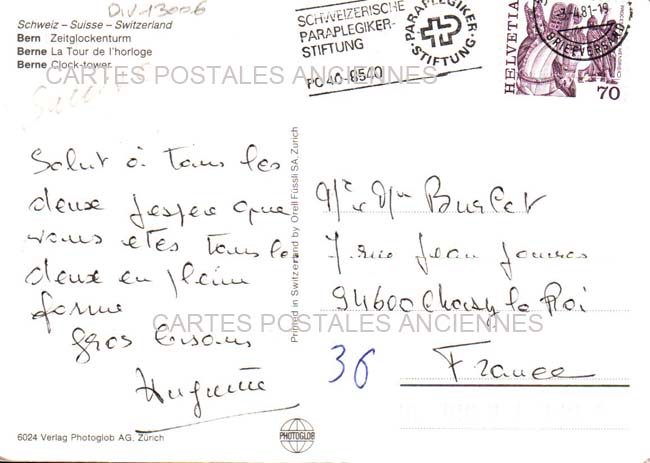 DIV-13006
Schweiz – Suisse – Switzerland
Bern Zeitglockenturm
Berne La Tour de l'horloge
Berne Clock-tower
CARTES POSTALES ANCIENNES
SCHWEIZERISCHE
PARAPLEGIKER-
STIFTUNG
PC 40-8540
PARAPLEGIKER-
STIFTUNG
HELVETIA
70
-3.-4.81-19
BRIEFVERSAND
Salut à tous les
deux jespère que
vous etes tous les
deux en pleine
forme
gros bisous
Huguette
Printed in Switzerland by Orell Füssli SA, Zurich
Mr & Mm Burlet
7 rue Jean Jaures
94600 Choisy le Roi
France
CARTES POSTALES ANCIENNES
36
6024 Verlag Photoglob AG, Zürich
PHOTOGLOB